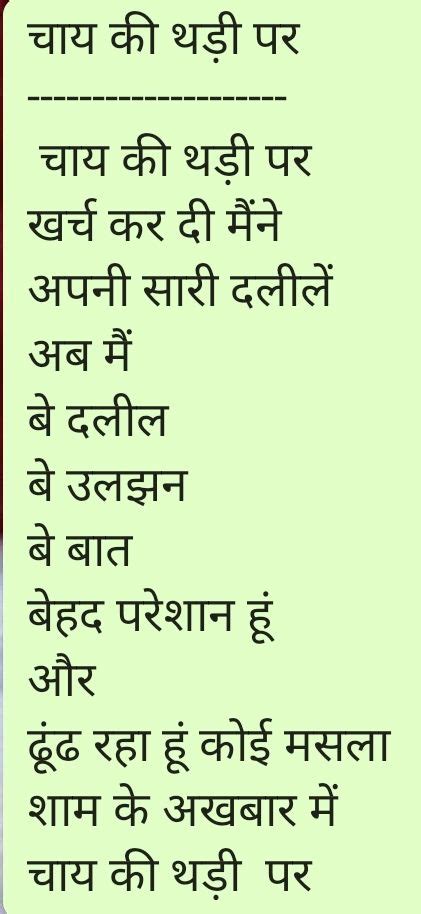 चाय की थड़ी पर
--------------------
चाय की थड़ी पर
खर्च कर दी मैंने
अपनी सारी दलीलें
अब मैं
बे दलील
बे उलझन
बे बात
बेहद परेशान हूं
और
ढूंढ रहा हूं कोई मसला
शाम के अखबार में
चाय की थड़ी  पर